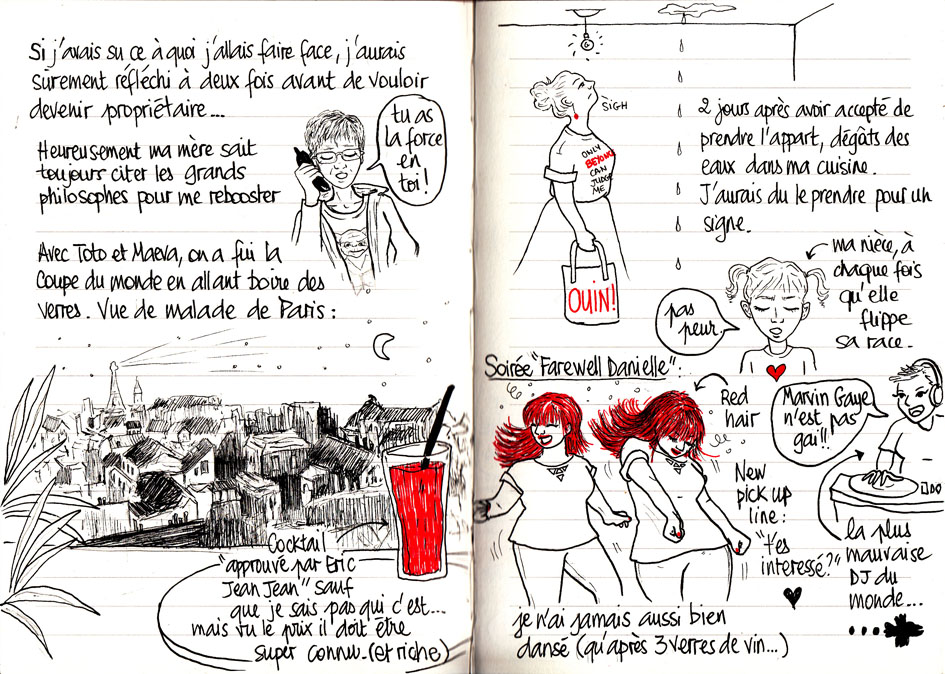 Si j'avais su ce à quoi j'allais faire face, j'aurais
sûrement réfléchi à deux fois avant de vouloir
devenir propriétaire...
tu as
la force
en
toi !
Heureusement ma mère sait
toujours citer les grands
philosophes pour me rebooster
Avec Toto et Maeva, on a fui la
Coupe du monde en allant boire des
verres. Vue de malade de Paris :
Cocktail
"approuvé par Eric
Jean Jean" sauf
que je sais pas qui c'est...
mais vu le prix il doit être
super connu. (et riche)
SIGH
ONLY
BEYONCE
CAN
JUDGE
ME
OUIN!
2 jours après avoir accepté de
prendre l'appart, dégâts des
eaux dans ma cuisine.
J'aurais du le prendre pour un
signe.
ma nièce, à
chaque fois
qu'elle
flippe
sa race.
pas
peur.
Soirée "Farewell Danielle" :
Red
hair
Marvin Gaye
n'est pas
gai !!
New
pick up
line :
"t'es
intéressé?"
la plus
mauvaise
DJ du
monde...
je n'ai jamais aussi bien
dansé (qu'après 3 verres de vin...)